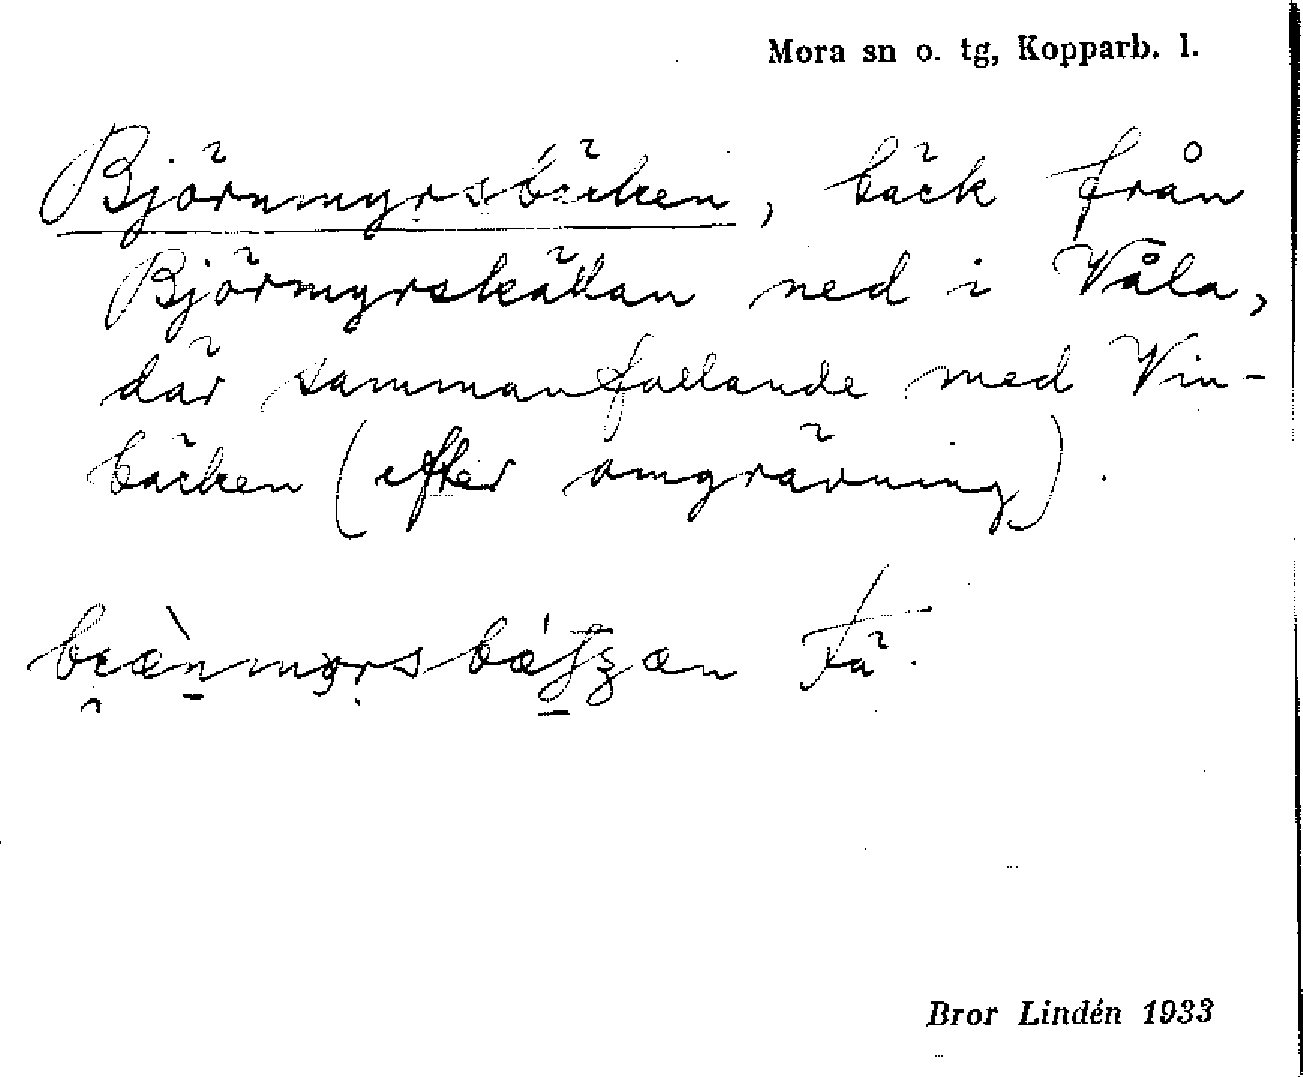 Mora sn o. tg, Kopparb. l.
Björnmyrsbäcken, bäck från
Björmyrskällan ned i Våla,
där sammanfallande med Vin-
bäcken (efter omgrävning).
Bror Lindén 1933